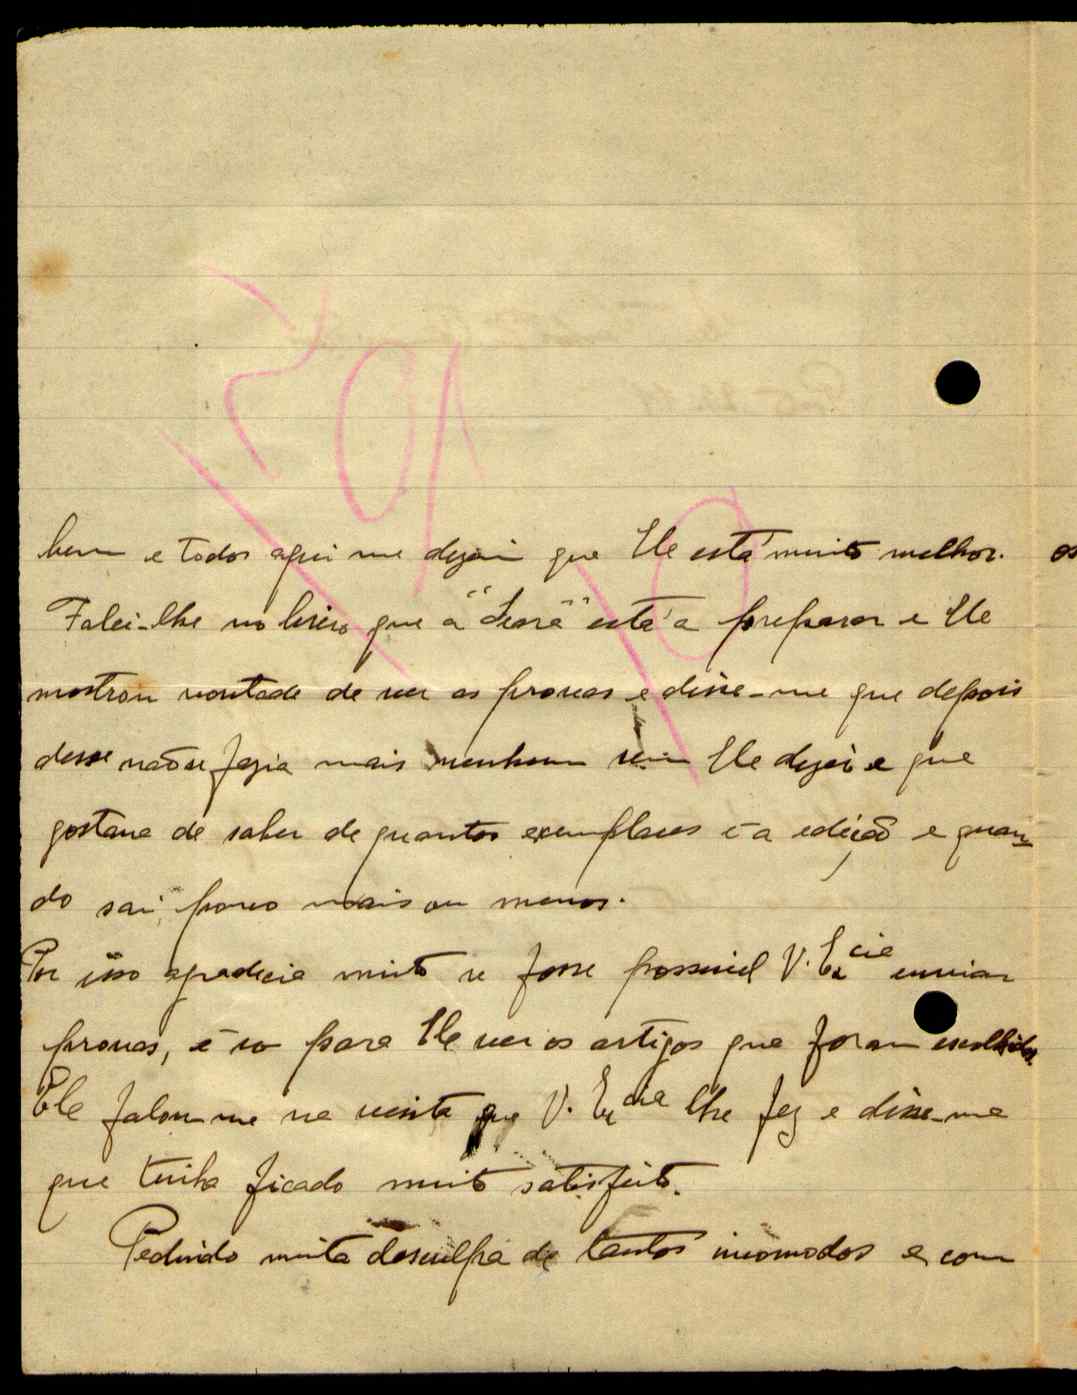 bem e todos aqui me dizem que Ele está muito melhor.
Falei-lhe no livro que a "Seara" está a preparar e Ele
mostrou vontade de ver as provas e disse-me que depois
desse não se fazia mais nenhum sem Ele dizer e que
gostava de saber de quantos exemplares é a edição e quan-
do sai pouco mais ou menos.
Por isso agradecia muito se fosse possivel V. Excia enviar
provas, é so para Ele ver os artigos que foram escolhidos.
Ele falou-me na visita que V. Excia lhe fez e disse-me
que tinha ficado muito satisfeito.
Pedindo muita desculpa de tantos incomodos e com